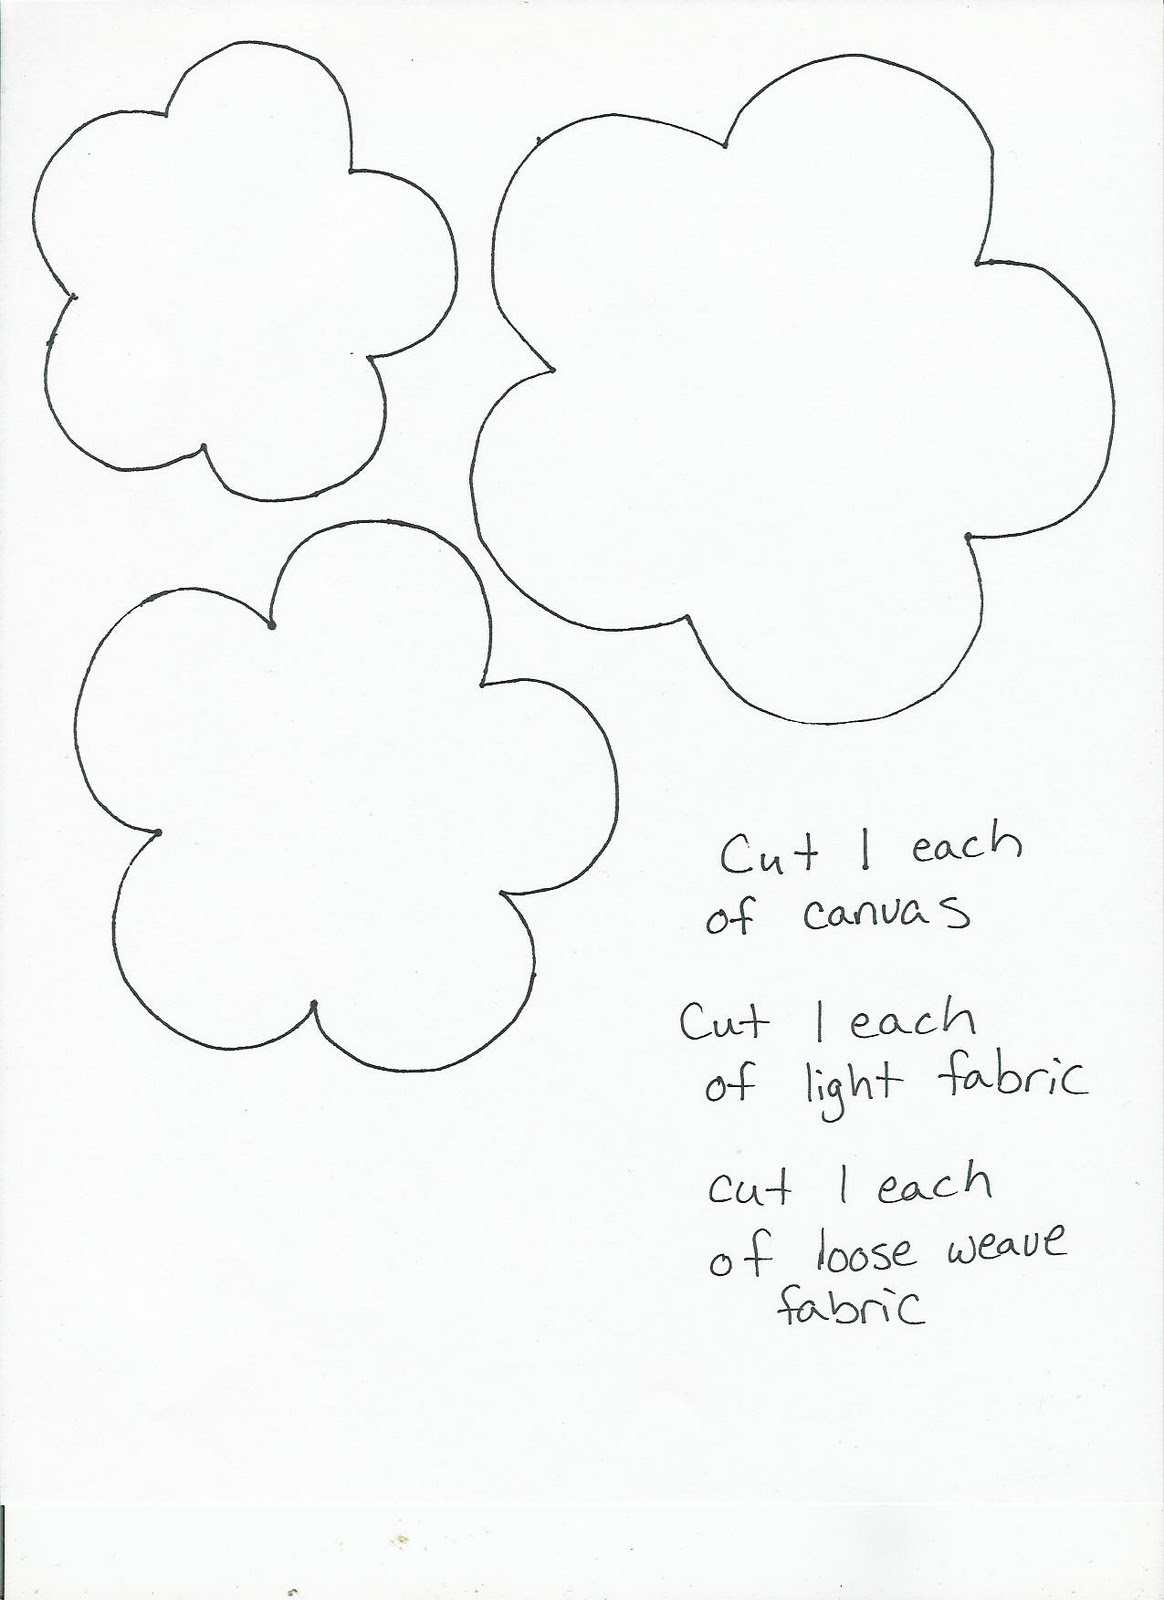 Cut 1 each
of canvas
Cut 1 each
of light fabric
cut 1 each
of loose weave
fabric